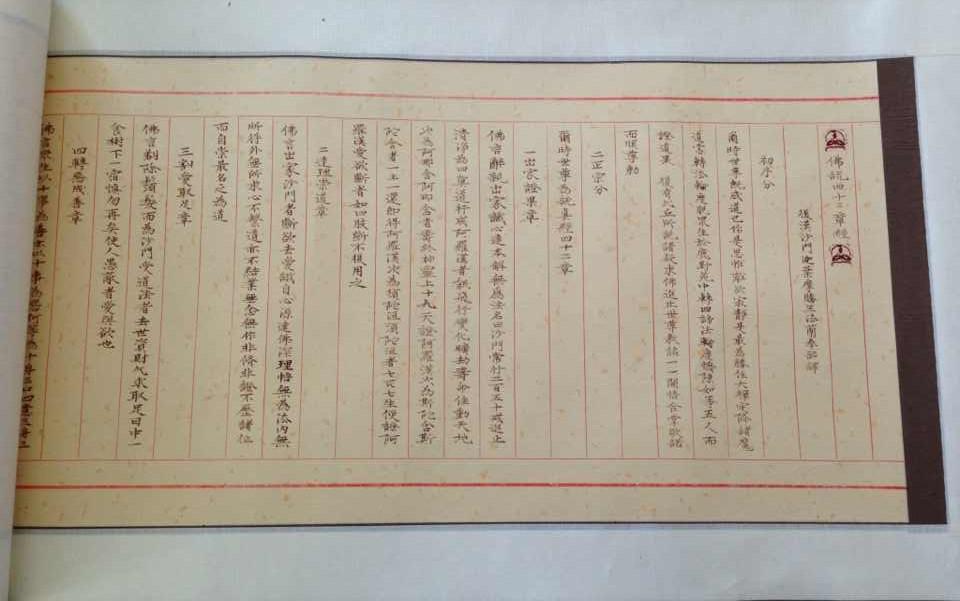 佛說四十二章經
後漢沙門迦葉摩騰竺法蘭奉詔譯
初序分
爾時世尊既成道已作是思惟離欲寂靜是最為勝住大禪定降諸魔
道當轉法輪度脫眾生於鹿野苑中轉四諦法輪度憍陳如等五人而
證道果 復有比丘所說諸疑求佛進止世尊教詔一一開悟合掌敬諾
而順尊勅
二正宗分
爾時世尊為說真經四十二章
一出家證果章
佛言辭親出家識心達本解無為法名曰沙門常行二百五十戒進止
清淨為四真道行成阿羅漢者能飛行變化曠劫壽命住動天地
次為阿那含阿那含者壽終神靈上十九天證阿羅漢次為斯陀含斯
陀含者一上一還即得阿羅漢次為須陀洹須陀洹者七死七生便證阿
羅漢愛欲斷者如四肢斷不復用之
二達理崇道章
佛言出家沙門者斷欲去愛識自心源達佛深理悟無為法內無
所得外無所求心不繫道亦不結業無念無作非修非證不歷諸位
而自崇最名之為道
三割愛取足章
佛言剃除鬚髮而為沙門受道法者去世資財乞求取足日中一
食樹下一宿慎勿再矣使人愚蔽者愛與欲也
四轉惡成善章
佛言眾生以十事為善亦以十事為惡何等為十身三口四意三身三